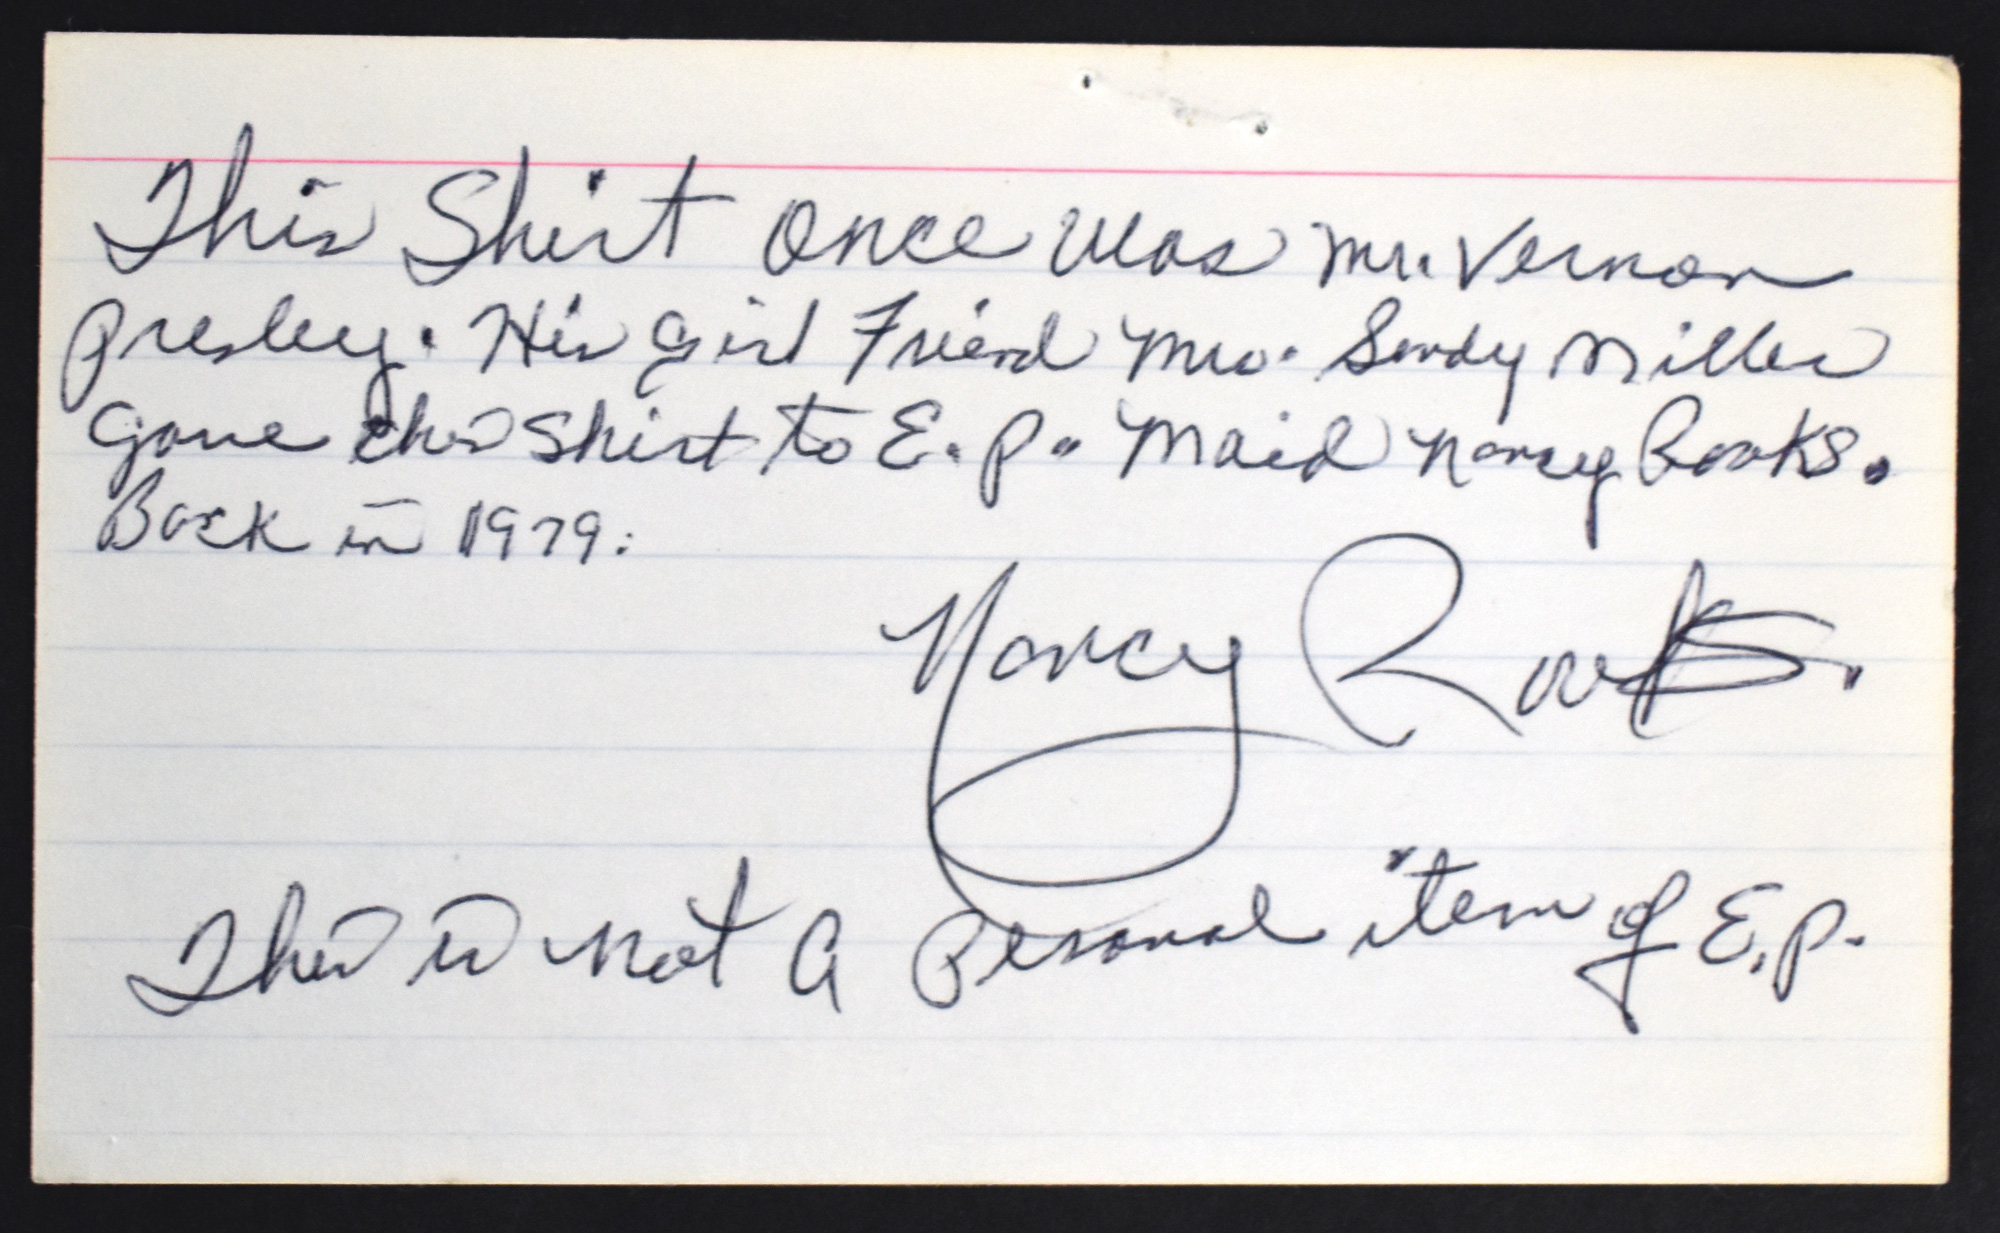 This Shirt Once Was Mr. Vernon
Presley. His girl Friend Mrs. Sandy Miller
gave this Shirt to E.P. Maid Nancy Rooks.
Back in 1979.
Nancy Rooks.
This is not A Personal item of E.P.